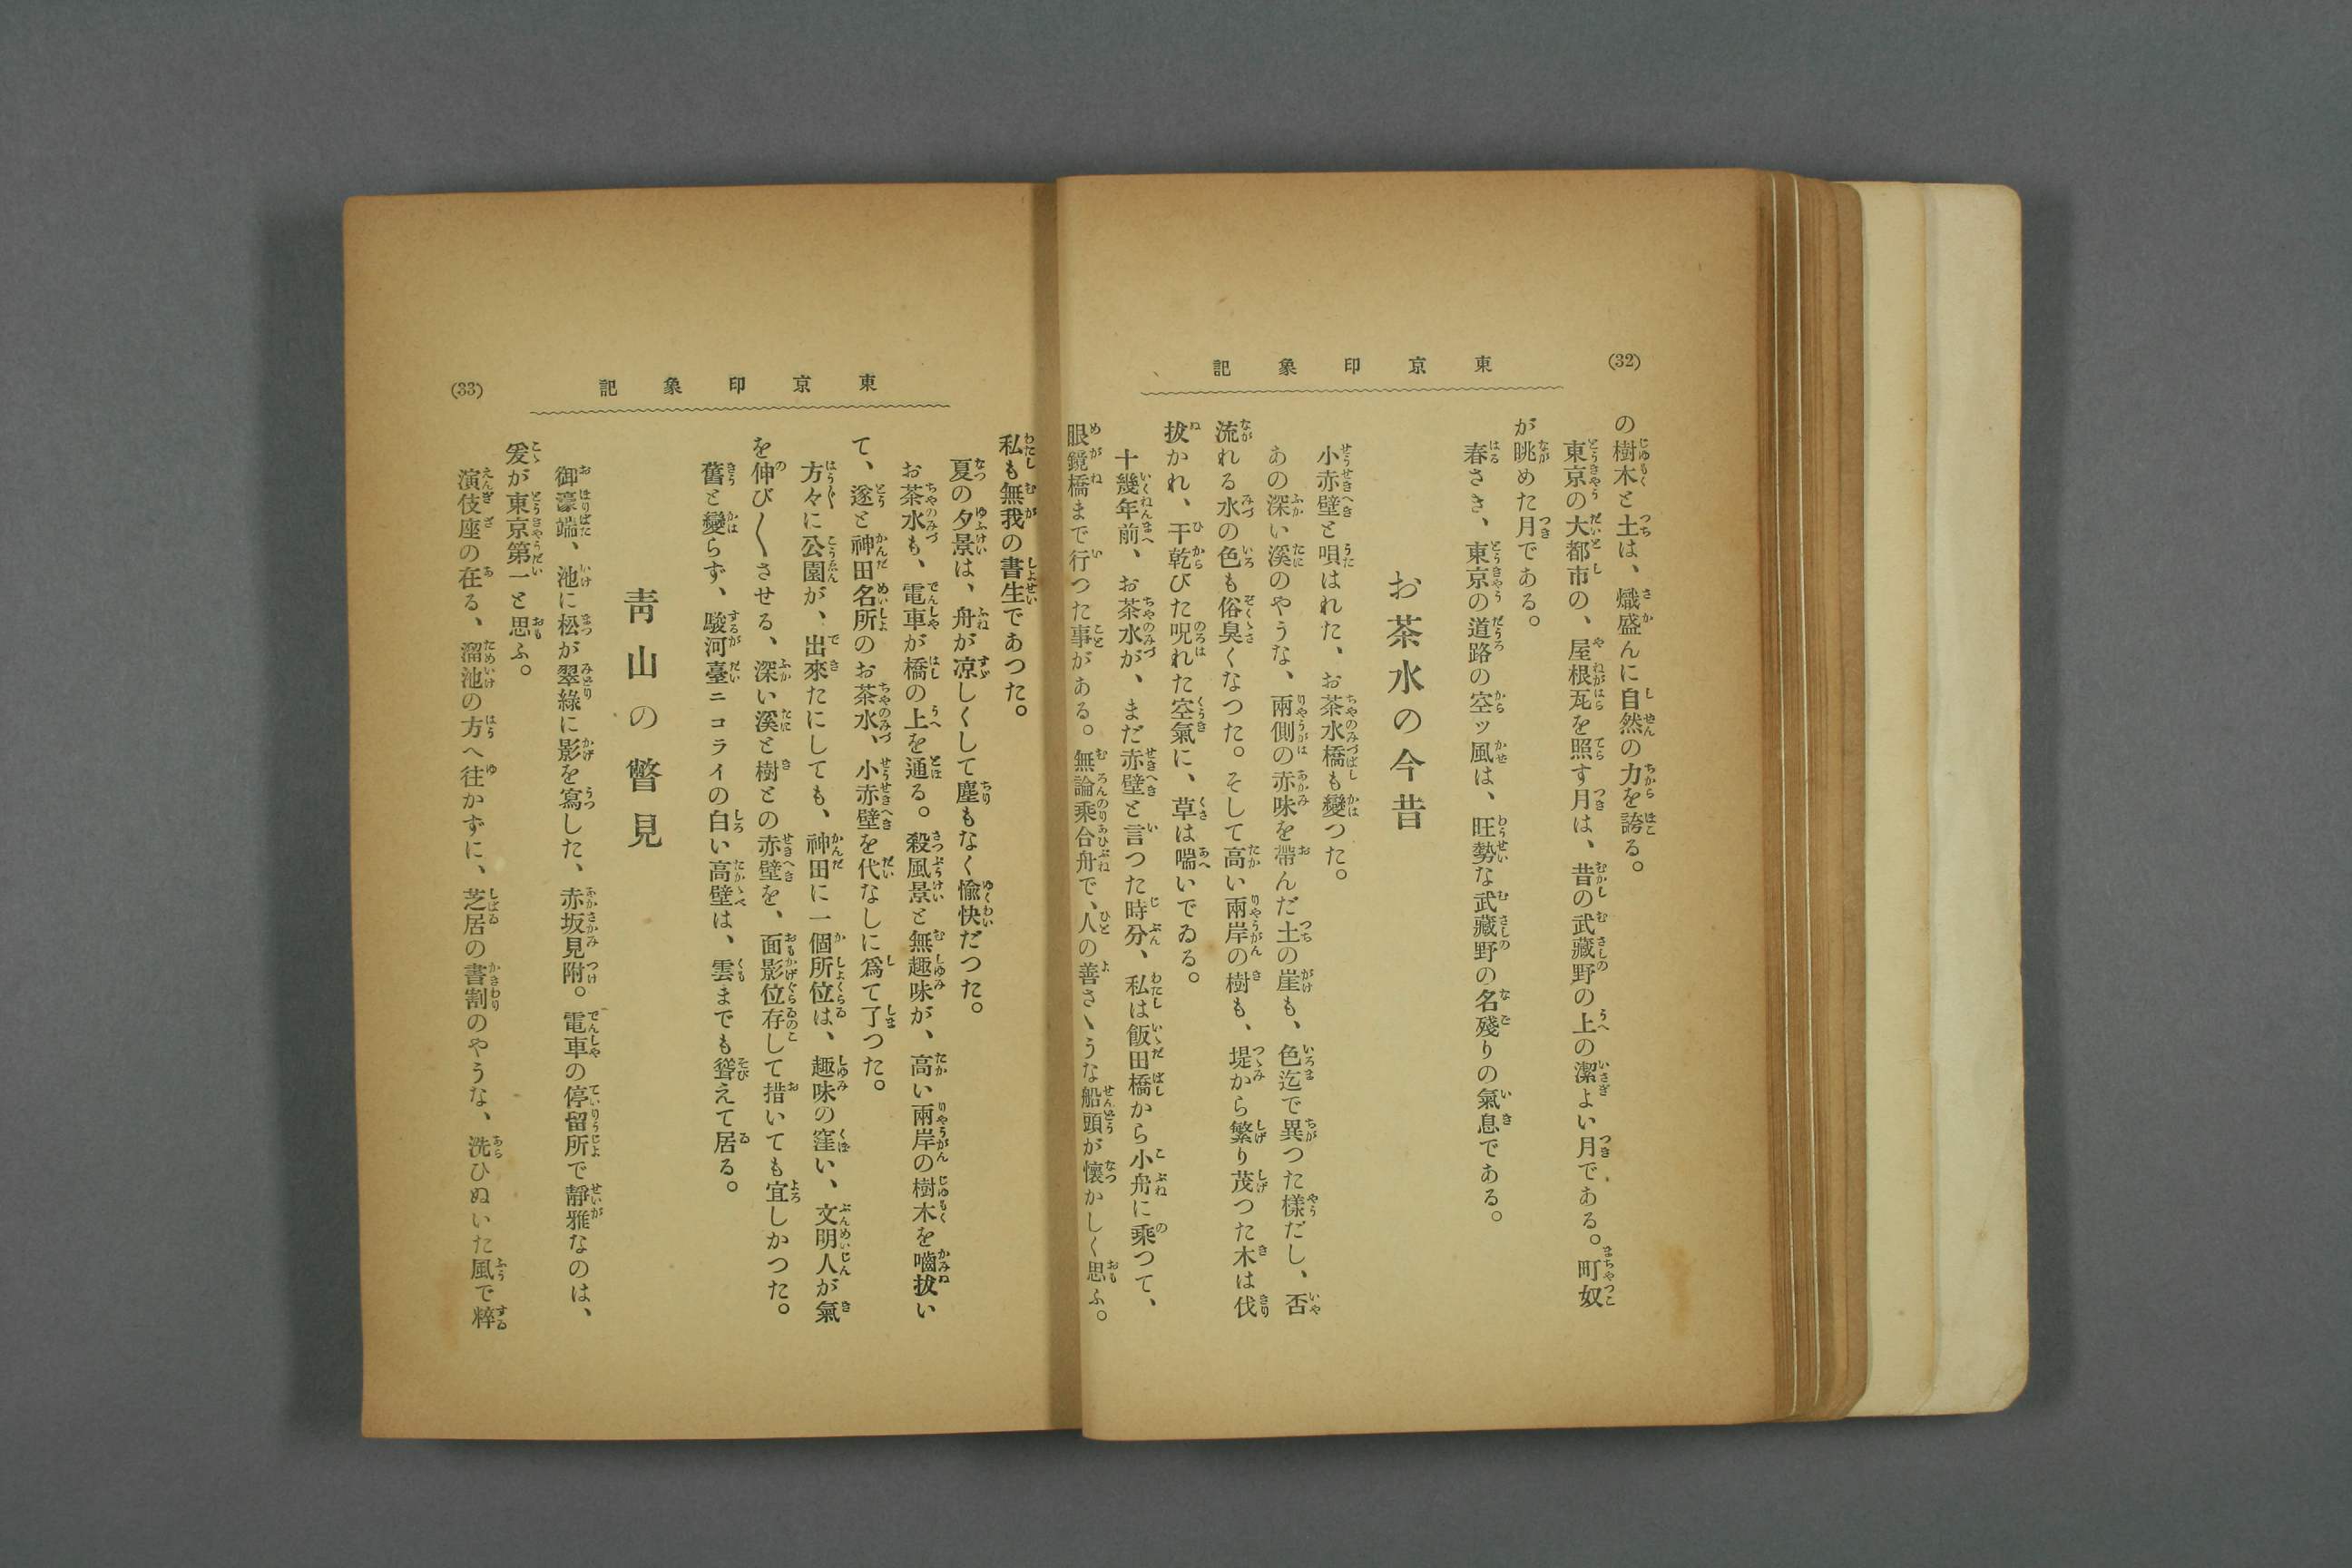 (32)
東京印象記
の樹木と土は、熾盛んに自然の力を誇る。
東京の大都市の、屋根瓦を照す月は、昔の武藏野の上の潔よい月である。町奴
が眺めた月である。
春さき、東京の道路の空ッ風は、旺勢な武藏野の名殘りの氣息である。
お茶水の今昔
小赤壁と唄はれた、お茶水橋も變つた。
あの深い溪のやうな、兩側の赤味を帶んだ土の崖も、色迄で異つた樣だし、否
流れる水の色も俗臭くなつた。そして高い兩岸の樹も、堤から繁り茂つた木は伐
拔かれ、干乾びた呪れた空氣に、草は喘いでゐる。
十幾年前、お茶水が、まだ赤壁と言つた時分、私は飯田橋から小舟に乘つて、
眼鏡橋まで行つた事がある。無論乘合舟で、人の善さゝうな船頭が懷かしく思ふ。
東京印象記
(33)
私も無我の書生であつた。
夏の夕景は、舟が凉しくして塵もなく愉快だつた。
お茶水も、電車が橋の上を通る。殺風景と無趣味が、高い兩岸の樹木を嚙拔い
て、遂と神田名所のお茶水、小赤壁を代なしに爲て了つた。
方々に公園が、出來たにしても、神田に一個所位は、趣味の窪い、文明人が氣
を伸び〱させる、深い溪と樹との赤壁を、面影位存して措いても宜しかつた。
舊と變らず、駿河臺ニコライの白い高壁は、雲までも聳えて居る。
靑山の瞥見
御濠端、池に松が翠綠に影を寫した、赤坂見附。電車の停留所で靜雅なのは、
爰が東京第一と思ふ。
演伎座の在る、溜池の方へ往かずに、芝居の書割のやうな、洗ひぬいた風で粹